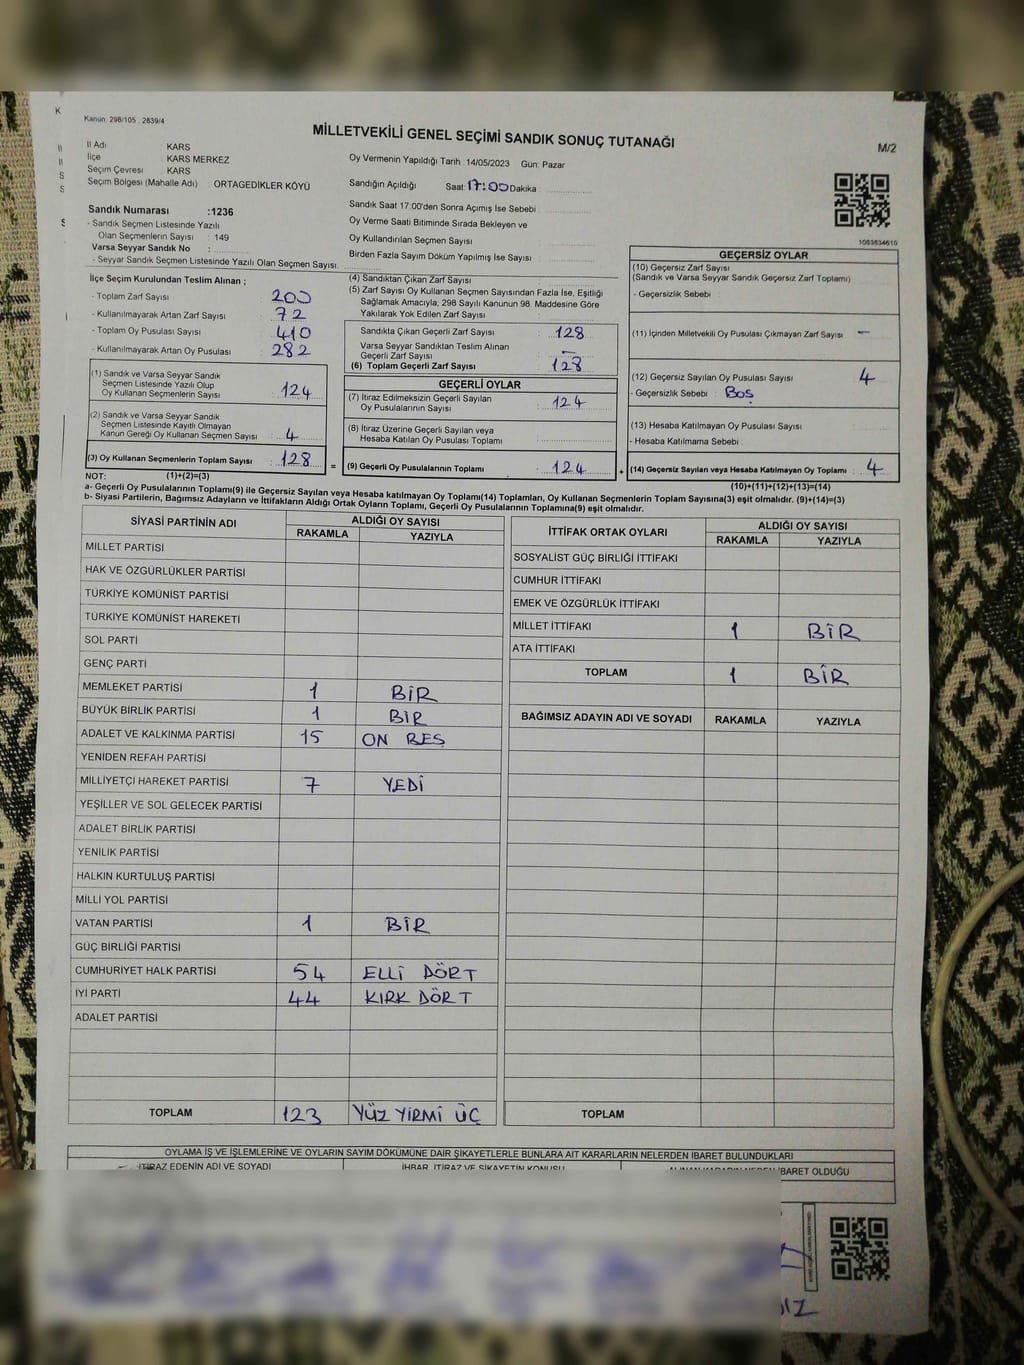 Kanun: 298/105 : 2839/4
MİLLETVEKİLİ GENEL SEÇİMİ SANDIK SONUÇ TUTANAĞI
M/2
İl Adı KARS
İlçe KARS MERKEZ
Seçim Çevresi KARS
Seçim Bölgesi (Mahalle Adı) : ORTAGEDİKLER KÖYÜ
Sandık Numarası :1236
- Sandık Seçmen Listesinde Yazılı
Olan Seçmenlerin Sayısı : 149
Varsa Seyyar Sandık No :
- Seyyar Sandık Seçmen Listesinde Yazılı Olan Seçmen Sayısı
Oy Vermenin Yapıldığı Tarih : 14/05/2023 Gün: Pazar
Sandığın Açıldığı Saat: 17:00 Dakika :
Sandık Saat 17:00'den Sonra Açımış İse Sebebi :
Oy Verme Saati Bitiminde Sırada Bekleyen ve
Oy Kullandırılan Seçmen Sayısı :
Birden Fazla Sayım Döküm Yapılmış İse Sayısı :
1083834610
İlçe Seçim Kurulundan Teslim Alınan ;
- Toplam Zarf Sayısı : 200
- Kullanılmayarak Artan Zarf Sayısı : 72
- Toplam Oy Pusulası Sayısı : 410
- Kullanılmayarak Artan Oy Pusulası : 282
(1) Sandık ve Varsa Seyyar Sandık
Seçmen Listesinde Yazılı Olup
Oy Kullanan Seçmen Sayısı : 124
(2) Sandık ve Varsa Seyyar Sandık
Seçmen Listesinde Kayıtlı Olmayan
Kanun Gereği Oy Kullanan Seçmen Sayısı : 4
(3) Oy Kullanan Seçmenlerin Toplam Sayısı : 128
(4) Sandıktan Çıkan Zarf Sayısı
(5) Zarf Sayısı Oy Kullanan Seçmen Sayısından Fazla İse, Eşitliği
Sağlamak Amacıyla, 298 Sayılı Kanunun 98. Maddesine Göre
Yakılarak Yok Edilen Zarf Sayısı :
Sandıkta Çıkan Geçerli Zarf Sayısı : 128
Varsa Seyyar Sandıktan Teslim Alınan
Geçerli Zarf Sayısı : -
(6) Toplam Geçerli Zarf Sayısı : 128
GEÇERLİ OYLAR
(7) İtiraz Edilmeksizin Geçerli Sayılan
Oy Pusulalarının Sayısı : 124
(8) İtiraz Üzerine Geçerli Sayılan veya
Hesaba Katılan Oy Pusulası Toplamı :
= (9) Geçerli Oy Pusulalarının Toplamı : 124 +
GEÇERSİZ OYLAR
(10) Geçersiz Zarf Sayısı
(Sandık ve Varsa Seyyar Sandık Geçersiz Zarf Toplamı)
- Geçersizlik Sebebi :
(11) İçinden Milletvekili Oy Pusulası Çıkmayan Zarf Sayısı : -
(12) Geçersiz Sayılan Oy Pusulası Sayısı : 4
- Geçersizlik Sebebi : Boş
(13) Hesaba Katılmayan Oy Pusulası Sayısı :
- Hesaba Katılmama Sebebi :
(14) Geçersiz Sayılan veya Hesaba Katılmayan Oy Toplamı : 4
NOT: (1)+(2)=(3)
(10)+(11)+(12)+(13)=(14)
a- Geçerli Oy Pusulalarının Toplamı(9) ile Geçersiz Sayılan veya Hesaba katılmayan Oy Toplamı(14) Toplamları, Oy Kullanan Seçmenlerin Toplam Sayısına(3) eşit olmalıdır. (9)+(14)=(3)
b- Siyasi Partilerin, Bağımsız Adayların ve İttifakların Aldığı Ortak Oyların Toplamı, Geçerli Oy Pusulalarının Toplamına(9) eşit olmalıdır.
SİYASİ PARTİNİN ADI ALDIĞI OY SAYISI
RAKAMLA YAZIYLA
MİLLET PARTİSİ
HAK VE ÖZGÜRLÜKLER PARTİSİ
TÜRKİYE KOMÜNİST PARTİSİ
TÜRKİYE KOMÜNİST HAREKETİ
SOL PARTİ
GENÇ PARTİ
MEMLEKET PARTİSİ 1 BİR
BÜYÜK BİRLİK PARTİSİ 1 BİR
ADALET VE KALKINMA PARTİSİ 15 ON BEŞ
YENİDEN REFAH PARTİSİ
MİLLİYETÇİ HAREKET PARTİSİ 7 YEDİ
YEŞİLLER VE SOL GELECEK PARTİSİ
ADALET BİRLİK PARTİSİ
YENİLİK PARTİSİ
HALKIN KURTULUŞ PARTİSİ
MİLLİ YOL PARTİSİ
VATAN PARTİSİ 1 BİR
GÜÇ BİRLİĞİ PARTİSİ
CUMHURİYET HALK PARTİSİ 54 ELLİ DÖRT
İYİ PARTİ 44 KIRK DÖRT
ADALET PARTİSİ
TOPLAM 123 YÜZ YİRMİ ÜÇ
İTTİFAK ORTAK OYLARI ALDIĞI OY SAYISI
RAKAMLA YAZIYLA
SOSYALİST GÜÇ BİRLİĞİ İTTİFAKI
CUMHUR İTTİFAKI
EMEK VE ÖZGÜRLÜK İTTİFAKI
MİLLET İTTİFAKI 1 BİR
ATA İTTİFAKI
TOPLAM 1 BİR
BAĞIMSIZ ADAYIN ADI VE SOYADI RAKAMLA YAZIYLA
TOPLAM
OYLAMA İŞ VE İŞLEMLERİNE VE OYLARIN SAYIM DÖKÜMÜNE DAİR ŞİKAYETLERLE BUNLARA AİT KARARLARIN NELERDEN İBARET BULUNDUKLARI
İTİRAZ EDENİN ADI VE SOYADI İHBAR, İTİRAZ VE ŞİKAYETİN KONUSU İBARET OLDUĞU